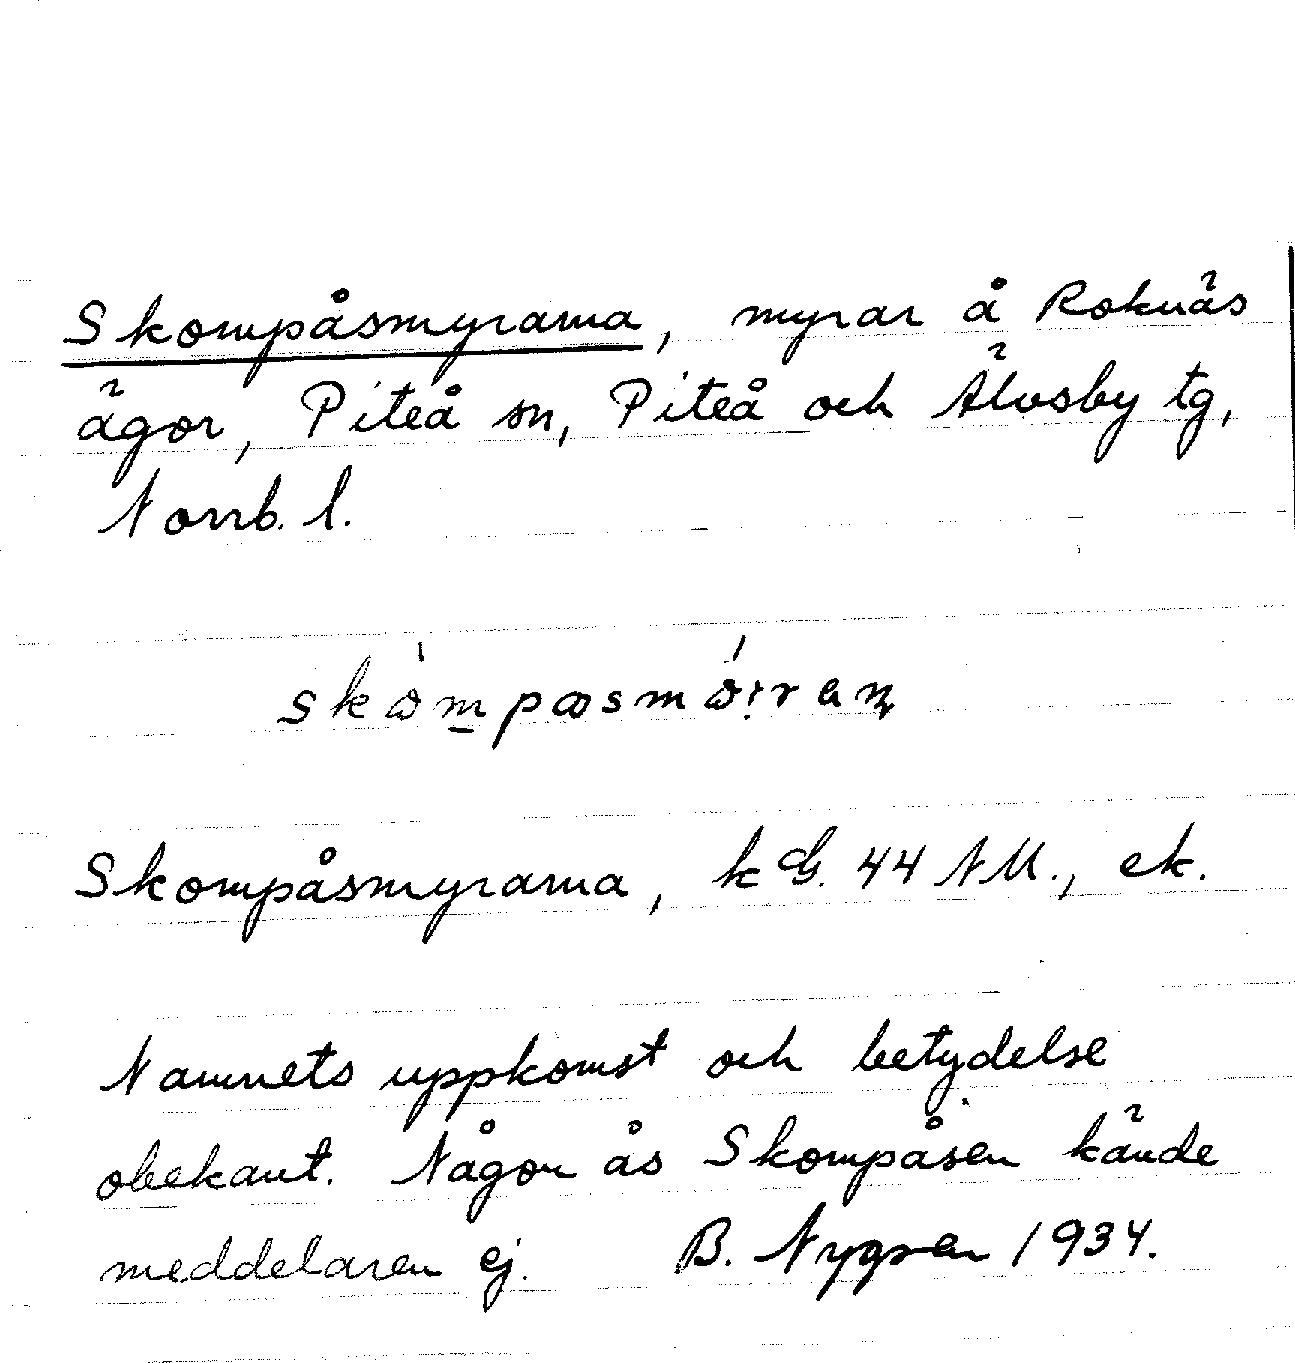 Skompåsmyrarna, myrar å Roknäs
ägor, Piteå sn, Piteå och Älvsby tg,
Norrb. l.
Skompåsmyrarna, kG. 44 NM., ek.
Namnets uppkomst och betydelse
obekant. Någon ås Skompåsen kände
meddelaren ej. B. Nygren 1934.